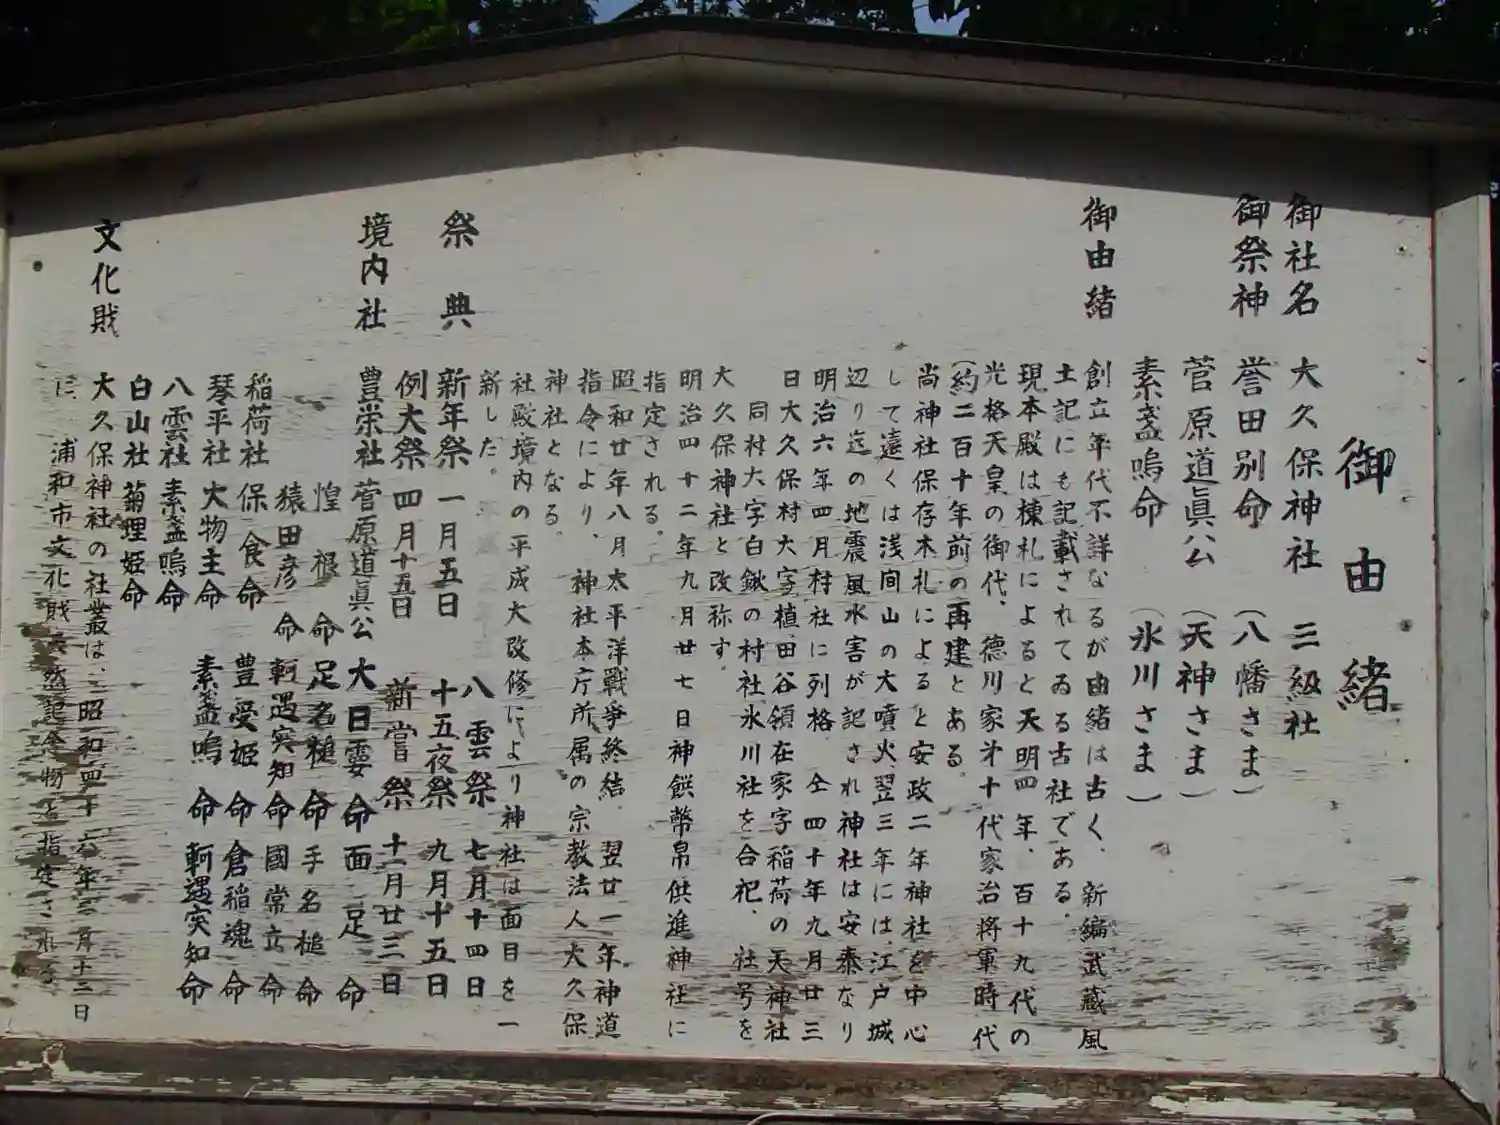 御由緒
御社名 大久保神社 三級社
御祭神 誉田別命 (八幡さま)
菅原道眞公 (天神さま)
素盞嗚命 (氷川さま)
御由緒 創立年代不詳なるが由緒は古く、新編武蔵風
土記にも記載されてゐる古社である。
現本殿は棟札によると天明四年、百十九代の
光格天皇の御代、徳川家才十代家治将軍時代
(約二百十年前の再建とある。
尚神社保存木札によると安政二年神社を中心
して遠くは浅間山の大噴火翌三年には、江戸城
辺り迄の地震風水害が記され神社は安泰なり
明治六年四月村社に列格、仝四十年九月廿三
日大久保村大字植田谷領在家字稲荷の天神社
同村大字白鍬の村社氷川社を合祀、社号を
大久保神社と改称す。
明治四十二年九月廿七日神饌幣帛供進神社に
指定される。
昭和廿年八月太平洋戦争終結、翌廿一年神道
指令により、神社本庁所属の宗教法人大久保
神社となる。
社殿境内の平成大改修により神社は面目を一
新した。
祭典 新年祭 一月五日 八雲祭 七月十四日
例大祭 四月十五日 十五夜祭 九月十五日
新嘗祭 十一月廿三日
境内社 豊栄社 菅原道眞公 大日孁命 面足命
惶根命 足名槌命 手名槌命
猿田彦命 軻遇突知命 國常立命
稲荷社 保食命 豊受姫命 倉稲魂命
琴平社 大物主命 素盞嗚命 軻遇突知命
八雲社 素盞嗚命
白山社 菊理姫命
文化財 大久保神社の社叢は、昭和四十六年三月十二日
に、浦和市文化財天然記念物に指定される